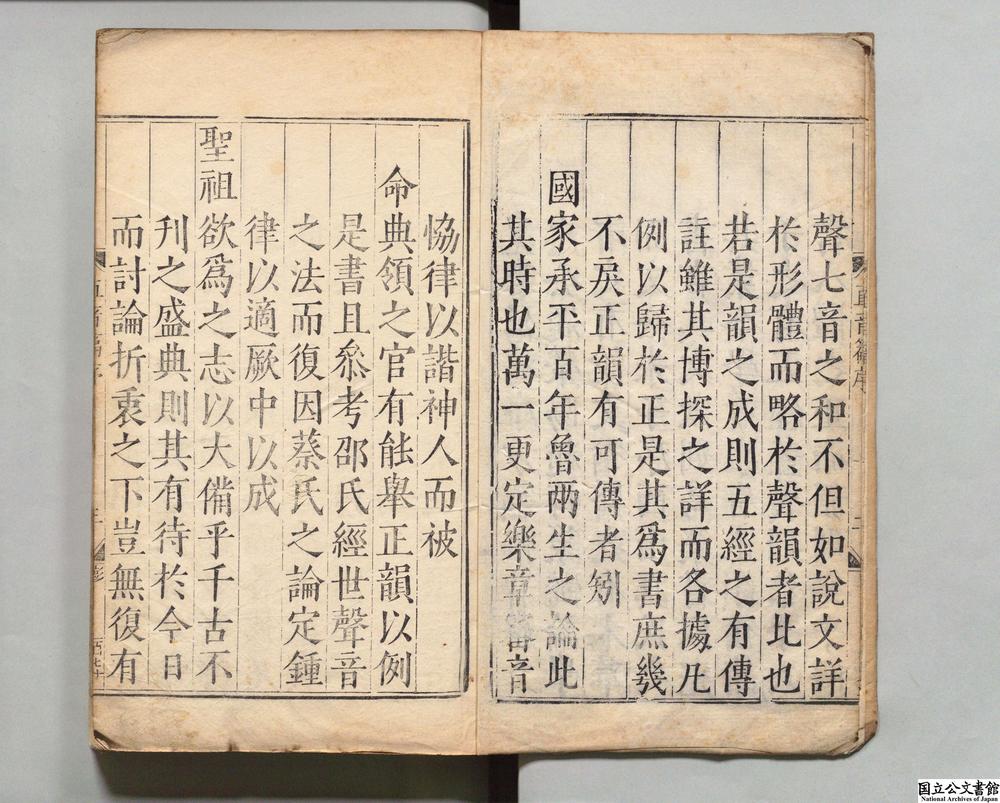 聲七音之和不但如說文詳
於形體而略於聲韻者比也
若是韻之成則五經之有傳
註雖其博探之詳而各據凡
例以歸於正是其為書庶幾
不戾正韻有可傳者矧
國家承平百年魯兩生之論此
其時也萬一更定樂章審音
恊律以諧神人而被
命典領之官有能舉正韻以例
是書且叅考邵氏經世聲音
之法而復因蔡氏之論定鍾
律以適厥中以成
聖祖欲為之志以大備乎千古不
刋之盛典則其有待於今日
而討論折衷之下豈無復有
国立公文書館
National Archives of Japan